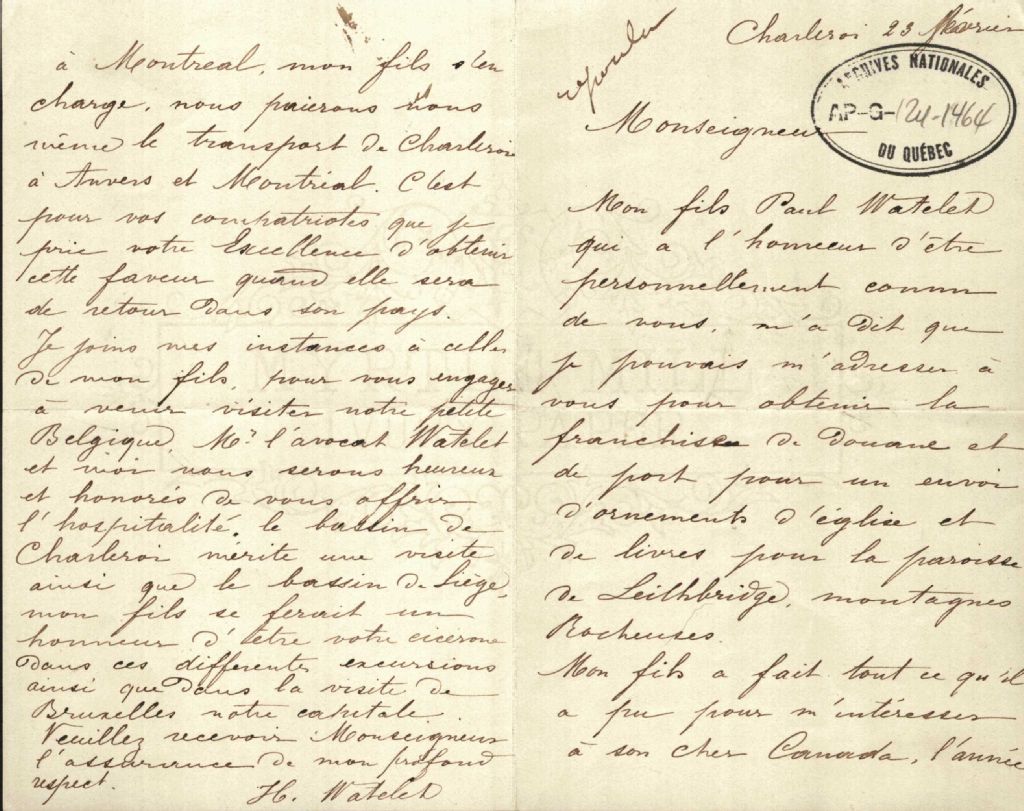 Charleroi 23 février
ARCHIVES NATIONALES
AP-G-124-1464
DU QUÉBEC
Monseigneur
Mon fils Paul Watelet
qui a l'honneur d'être
personnellement connu
de vous, m'a dit que
je pouvais m'adresser à
vous pour obtenir la
franchise de Douane et
de port pour un envoi
d'ornements d'église et
de livres pour la paroisse
de Leithbridge, montagnes
Rocheuses.
Mon fils a fait tout ce qu'il
a pu pour m'intéresser
à son cher Canada, l'année
à Montreal, mon fils s'en
charge, nous paierons nous
même le transport de Charleroi
à Anvers et Montréal. C'est
pour vos compatriotes que je
prie votre Excellence d'obtenir
cette faveur quand elle sera
de retour dans son pays.
Je joins mes instances à celles
de mon fils, pour vous engager
à venir visiter notre petite
Belgique, Mr l'avocat Watelet
et moi nous serons heureux
et honorés de vous offrir
l'hospitialité. le bassin de
Charleroi mérite une visite
ainsi que le bassin de Liège,
mon fils se ferait un
honneur d'être votre cicerone
dans ces differentes excursions
ainsi que dans la visite de
Bruxelles notre capitale.
Veuillez recevoir Monseigneur
l'assurance de mon profond
respect.
H. Watelet